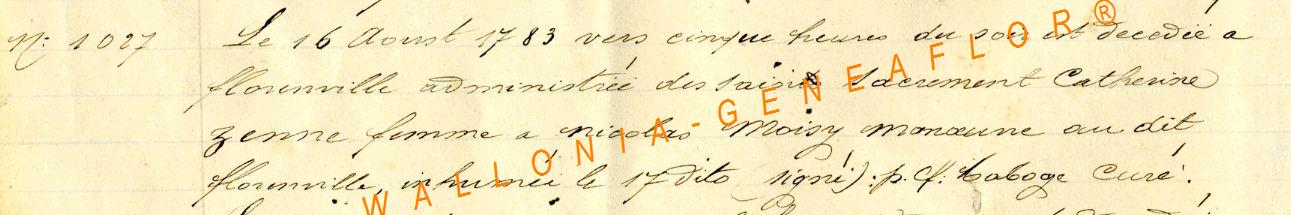 N: 1027 Le 16 Aoust 1783 vers cinque heures du soir est decedée a
florenville administrée des saints Sacrement Catherine
Zenne femme a nicolas Moisy manœuvre au dit
florenville, inhumée le 17 dito (signé). p. f. Laboge Curé.
WALLONIA-GENEAFLOR®